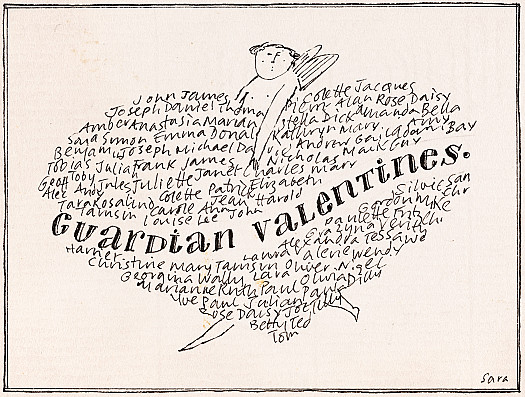 John James Colette Jacques
Joseph Daniel Thomas Pierre Alan Rose Daisy
Amber Anastasia Marian Stella Dick Amanda Bella
Sara Simon Emma Donald Kathryn Mary Amy
Benjamin Joseph Michael Andrew Gail Bay
Tobias Julia Frank James Nicholas Mark Guy
Geoff Toby Jules Juliette Janet Charles Mary
Alec Andy Colette Patrick Elizabeth
Tara Rosalind Jean Harold
Tamsin Carole Ann John
Louise Lee
Silvie San
Gordon Mike
Guardian Valentines.
Danielle
Grazyna
Alexandra Tessa
Harriet Laura Valerie Wendy
Christine Mary Tamsin Oliver Nigel
Georgina Wally Lara Olivia Dilly
Marianne Ruth Paul
Yve Paul Julian
Rose Daisy Joe Tilly
Betty Ted
Tom
Sara